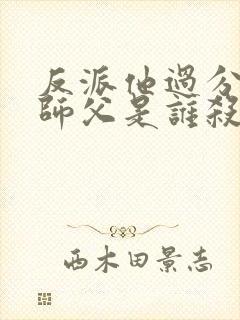 反派他過分
師父是誰殺
西木田景志